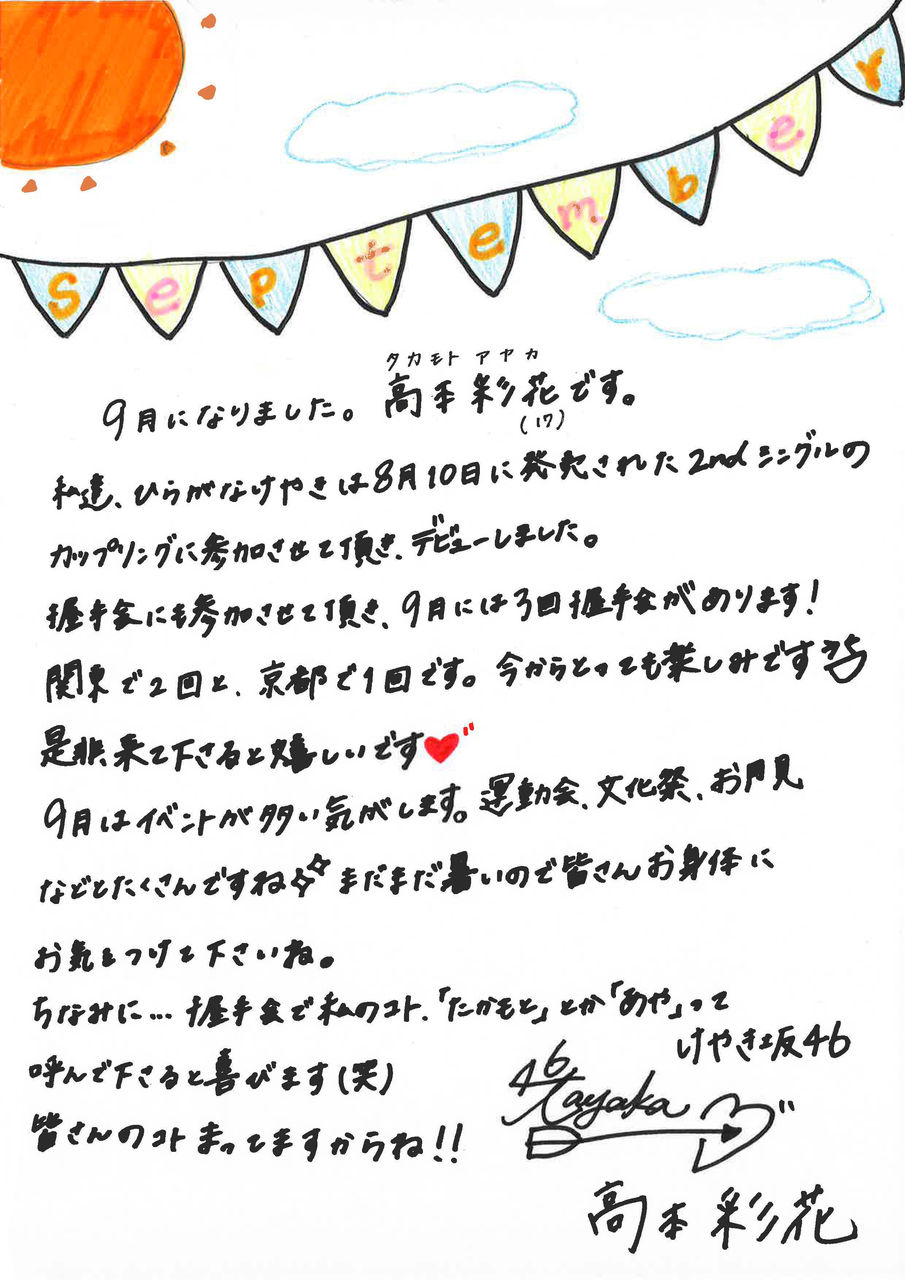 September
タカモト アヤカ
9月になりました。高本彩花です。
(17)
私達、ひらがなけやきは8月10日に発売された2ndシングルの
カップリングに参加させて頂き、デビューしました。
握手会にも参加させて頂き、9月には3回握手会があります!
関東で2回と、京都で1回です。今からとっても楽しみです
是非、来て下さると嬉しいです
9月はイベントが多い気がします。運動会、文化祭、お月見
などとたくさんですね まだまだ暑いので皆さんお身体に
お気をつけて下さいね。
ちなみに…握手会で私のコト、「たかもと」とか「あや」って
呼んで下さると喜びます(笑)
皆さんのコトまってますからね!!
けやき坂46
46
Tayaka
高本彩花